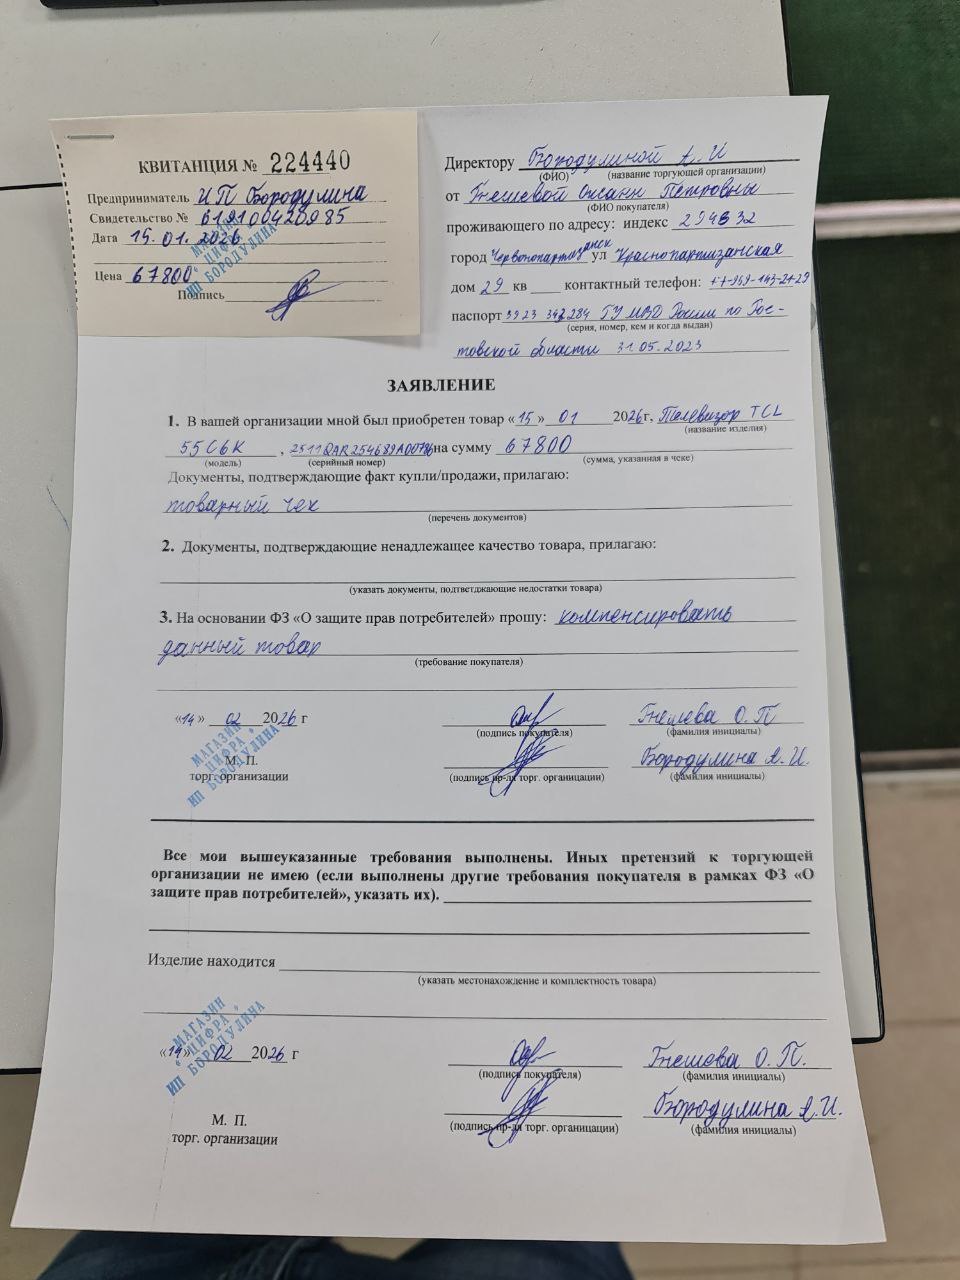 КВИТАНЦИЯ № 224440
Предприниматель ИП Бородулина
Свидетельство №
Дата 15.01.2026
Цена 67800
Подпись
МАГАЗИН
"ЦИФРА"
ИП БОРОДУЛИНА
Директору Бородулиной А. И
(ФИО) (название торгующей организации)
от Гнешевой Оксаны Петровны
(ФИО покупателя)
проживающего по адресу: индекс
город Червонопартизанск ул Краснопартизанская
дом 29 кв ____ контактный телефон:
(серия, номер, кем и когда выдан)
паспорт ГУ МВД России по Рос-
товской области 31.05.2023
ЗАЯВЛЕНИЕ
1. В вашей организации мной был приобретен товар «15» 01 2026г, Телевизор TCL
(название изделия)
55C6K , на сумму 67800
(модель) (серийный номер) (сумма, указанная в чеке)
Документы, подтверждающие факт купли/продажи, прилагаю:
товарный чек
(перечень документов)
2. Документы, подтверждающие ненадлежащее качество товара, прилагаю:
(указать документы, подтветджающие недостатки товара)
3. На основании ФЗ «О защите прав потребителей» прошу: компенсировать
данный товар
(требование покупателя)
«14» 02 2026 г Гнешева О. П
(подпись покупателя) (фамилия инициалы)
МАГАЗИН
"ЦИФРА"
ИП БОРОДУЛИНА
М. П. Бородулина А. И.
торг. организации (подпись пр-ля торг. органицации) (фамилия инициалы)
Все мои вышеуказанные требования выполнены. Иных претензий к торгующей
организации не имею (если выполнены другие требования покупателя в рамках ФЗ «О
защите прав потребителей», указать их).
Изделие находится
(указать местонахождение и комплектность товара)
МАГАЗИН
"ЦИФРА"
ИП БОРОДУЛИНА
«14» 02 2026 г Гнешева О. П.
(подпись покупателя) (фамилия инициалы)
Бородулина А. И.
М. П. (подпись пр-ля торг. органицации) (фамилия инициалы)
торг. организации